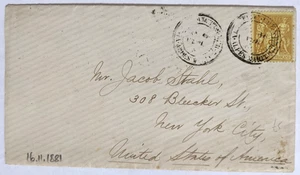 Mr. Jacob Stahl,
308 Bleecker St.,
New York City,
United States of America
16.11.1881